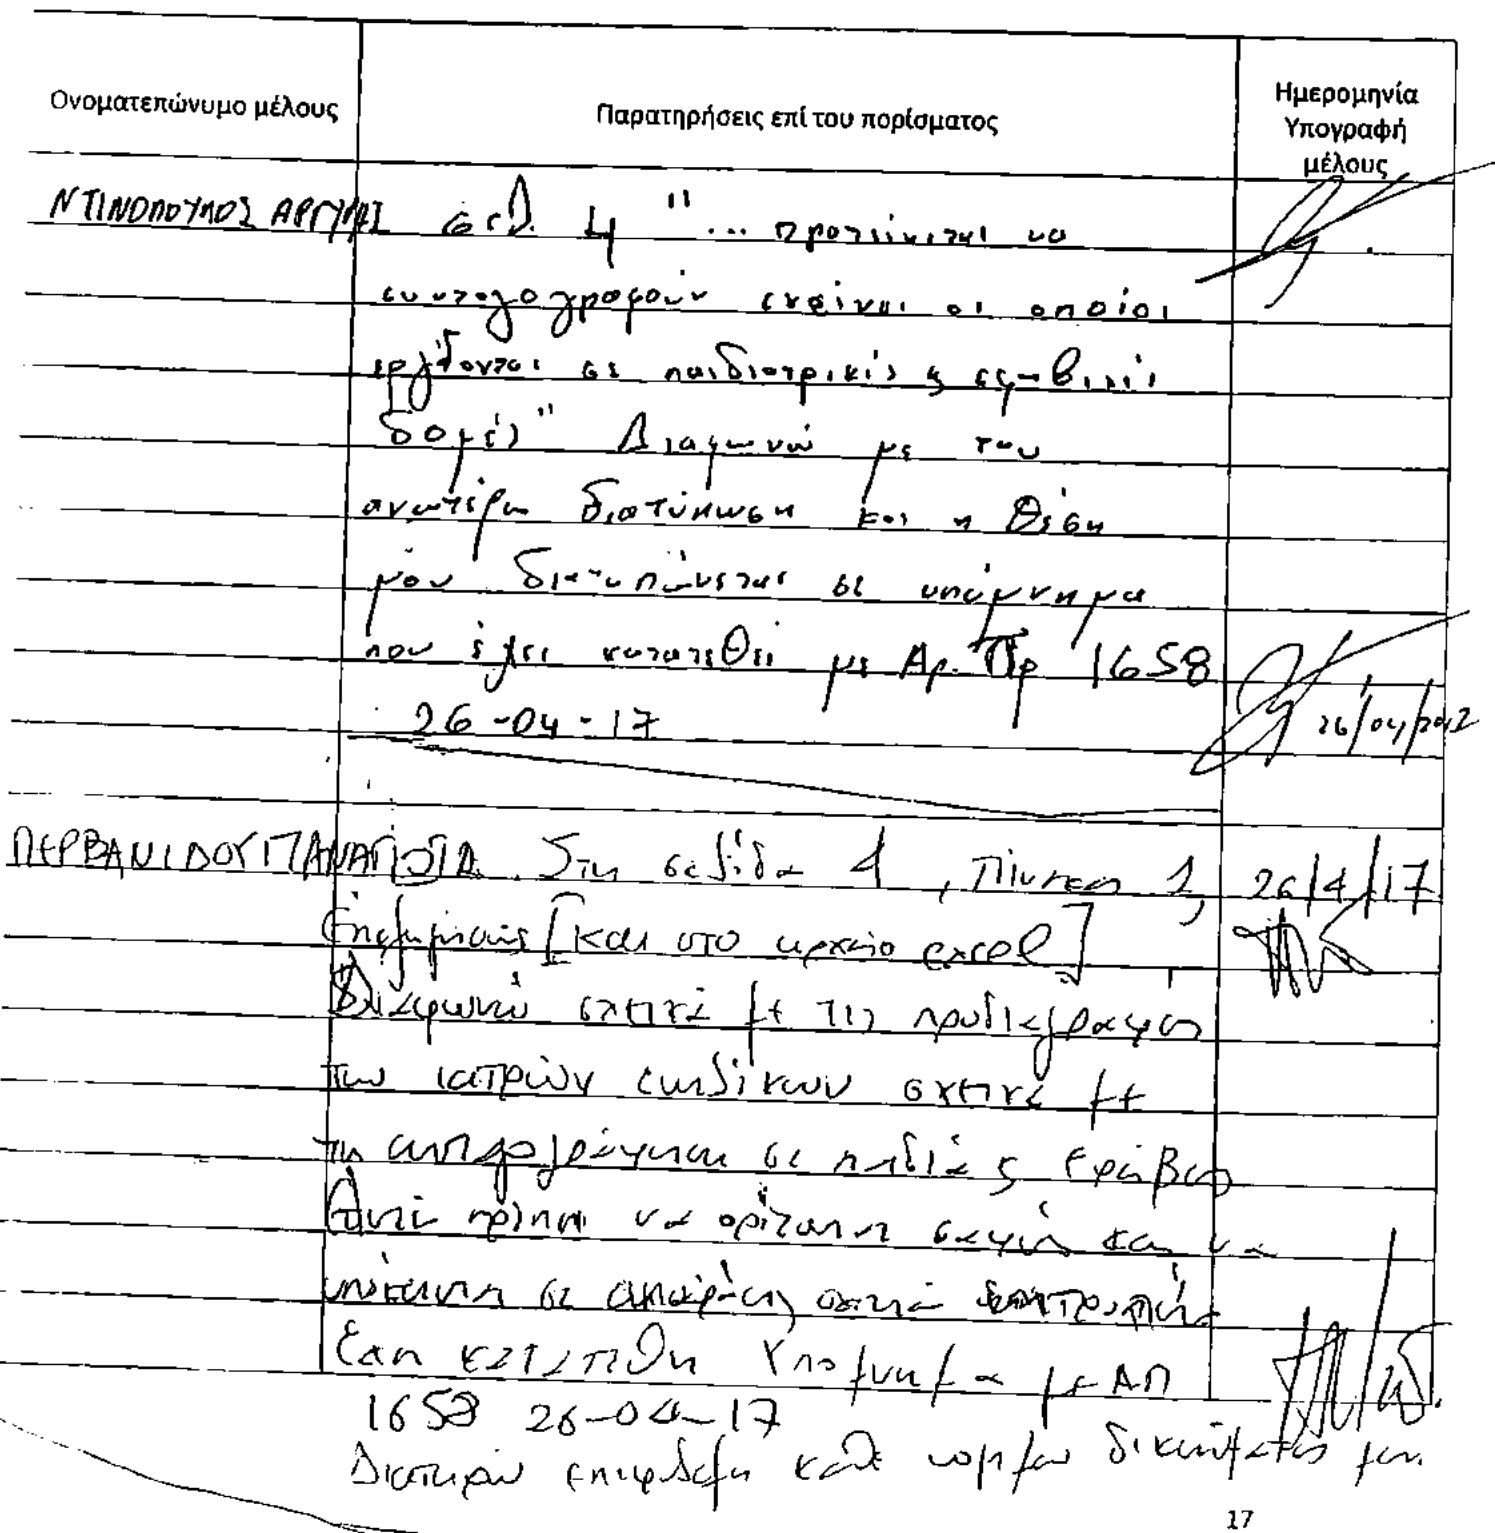 Ονοματεπώνυμο μέλους
Παρατηρήσεις επί του πορίσματος
Ημερομηνία
Υπογραφή
μέλους
ΝΤΙΝΟΠΟΥΛΟΣ ΑΡΓΥΡΗΣ σελ. 4 "... προτείνεται να
συνταγογραφούν εκείνοι οι οποίοι
εργάζονται σε παιδιατρικές ή εφηβικές
δομές" Διαφωνώ με την
ανωτέρω διατύπωση και η θέση
μου διατυπώνεται σε υπόμνημα
που έχει κατατεθεί με Αρ. Πρ 1658
26-04-17
26/04/2017
ΠΕΡΒΑΝΙΔΟΥ ΠΑΝΑΓΙΩΤΑ Στη σελίδα 4, Πίνακας 1,
26/4/17
[και στο αρχείο excel]
Διαφωνώ σχετικά με τις προδιαγραφές
των ιατρών σχετικά με
τη συνταγογράφηση σε παιδιά & εφήβους
να σαφώς και να
σε
Έχει κατατεθεί Υπόμνημα με ΑΠ
1658 26-04-17
Διατηρώ επιφύλαξη κάθε νομίμου δικαιώματός μου.
17